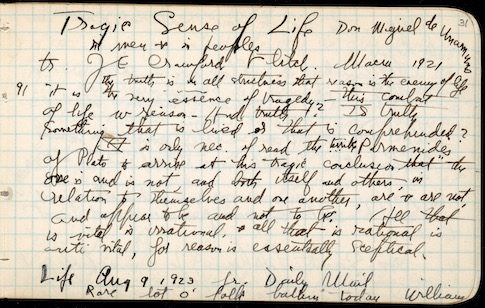 31
Tragic Sense of Life Don Miguel de Unamuno
in men & in peoples
tr. J E Crawford Flitch. Macm 1921
The truth is in all strictness that reason is the enemy of life
91 "it is the very essence of tragedy - this combat
of life w reason - And truth? Is truth
something that is lived or that is comprehended?
It is only nec. to read the Parmenides
of Plato to arrive at his tragic conclusion that "the
One is and is not and both itself and others, in
relation to themselves and one another, are & are not,
and appear to be and not to be." All that
is vital is irrational, & all that is rational is
anti vital, for reason is essentially sceptical.
Life Aug 9, 1923 fr. Daily Mail
Rare lot o' folk today William